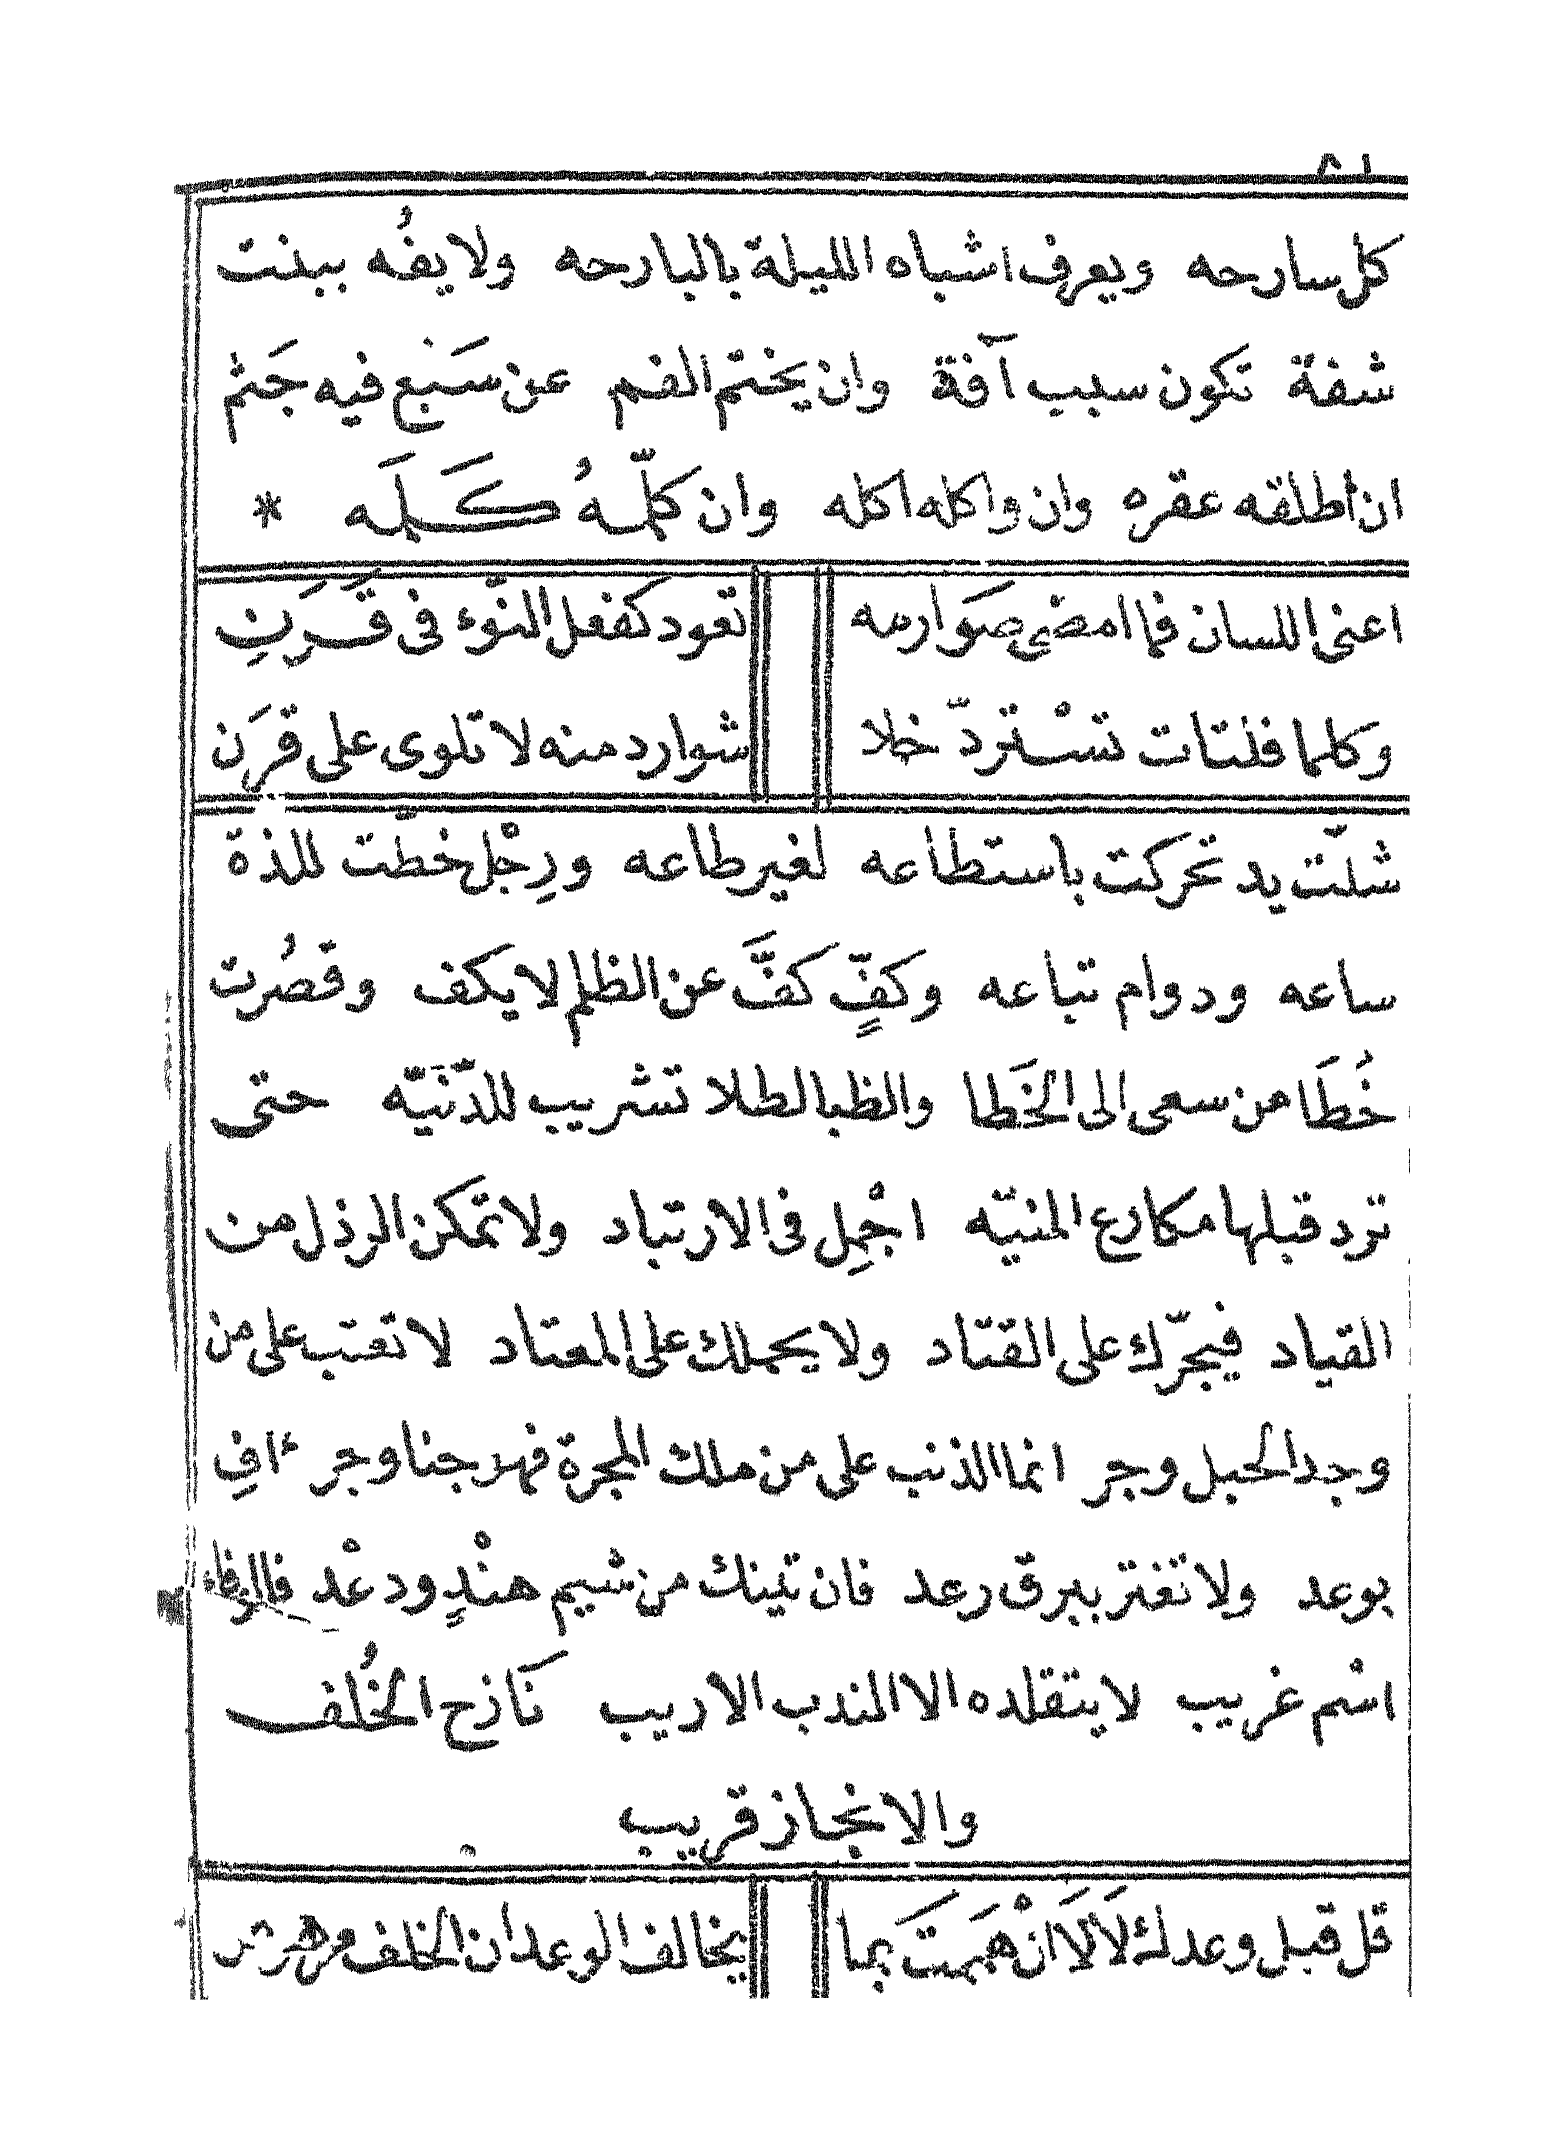 ٨١
كل سارحه ويعرف اشباه الليلة بالبارحه ولا يفُه ببنت
شفة تكون سبب آفة وان يختم الفم عن سَبع فيه جَثم
ان اطلقه عقره وان واكله اكله وان كلّمهُ كَلَمه *
اعنى اللسان فما امضى صَوارمه تعود كفعل النّوء فى قَرَنِ
وكلما فلتات تسْتردّ خلا شوارد منه لا تلوى على قرَن
شلّت يد تحركت باستطاعه لغير طاعه ورِجْل خطّت للذة
ساعه ودوام تباعه وكفٍّ كفَّ عن الظلم لا يكف وقصُرت
خُطَا من سعى الى الخَطا والظبا لطلا تشريب للدّنيّه حتى
ترد قبلها مكارع المنيّه اجْمِل فى الارتياد ولا تمَكن الرذل من
القياد فيجرّك على القتاد ولا يحملك على المعتاد لا تعتب على من
وجد الحبل وجر انما الذنب على من ملك المجرة فهرجنا وجر ءافِ
بوعد ولا تغتر ببرق رعد فان تينك من شيم هنْدٍ ودعْد فالوفاء
اسْم غريب لا يتقلده الا الندب الاريب نَازح الخُلف
والانجاز قريب
قل قبل وعدك لَا لَا انْ هَممتَ بما يخالف الوعد ان الخلف